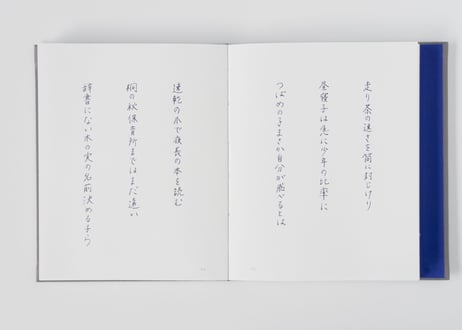 走り茶の速さを筒に封じけり
昼寝子は兎に少年の比率に
つばめの子まさか自分が飛べるとは
速乾の爪で夜長の本を読む
桐の秋保育所まではまだ遠い
辞書にない木の実の名前決める子ら